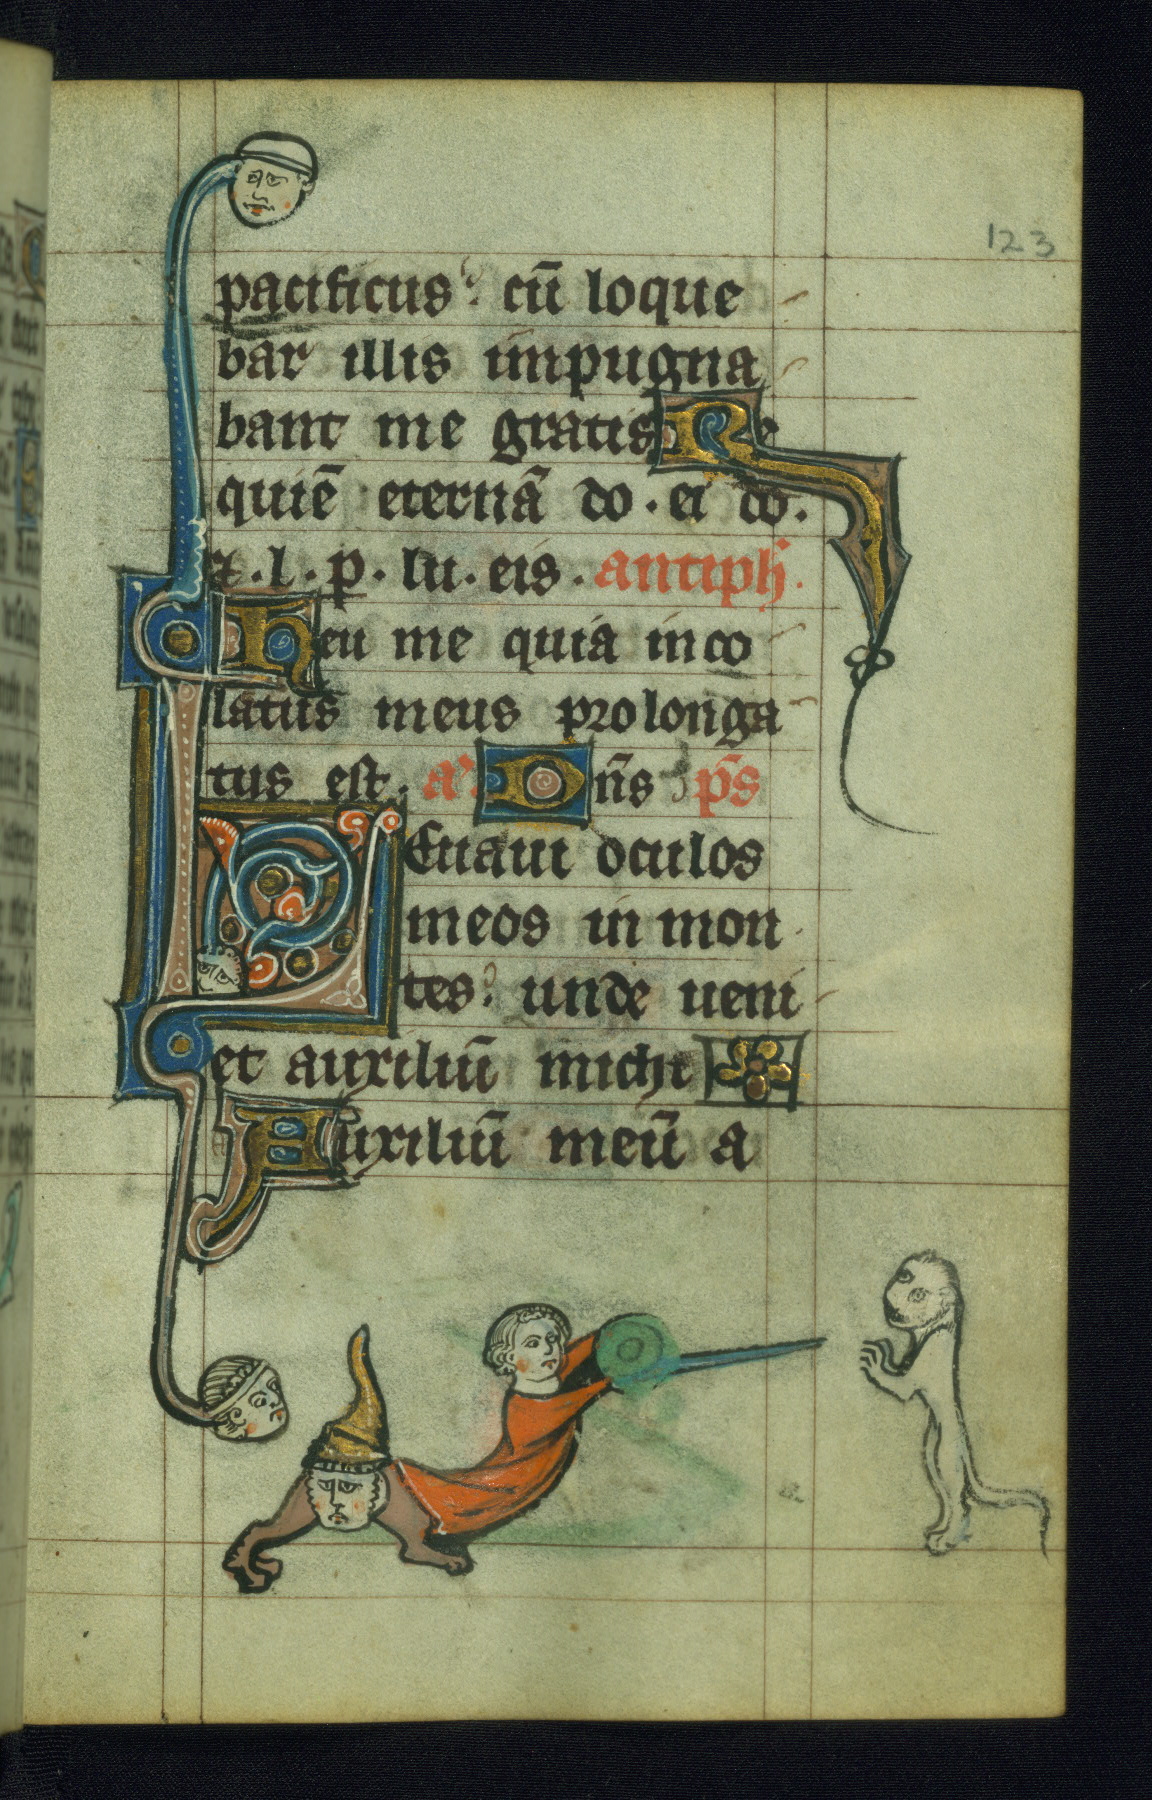 123
pacificus: cū loque
bar illis impugna
bant me gratis Re
quiē eternā do. ei do.
⁊.l.p.lu.eis. antiph.
Heu me quia inco
latus meus prolonga
tus est. a. Dn̄s p̄s
Leuaui oculos
meos in mon
tes: unde ueni
et auxiliū michi
Auxiliū meū a